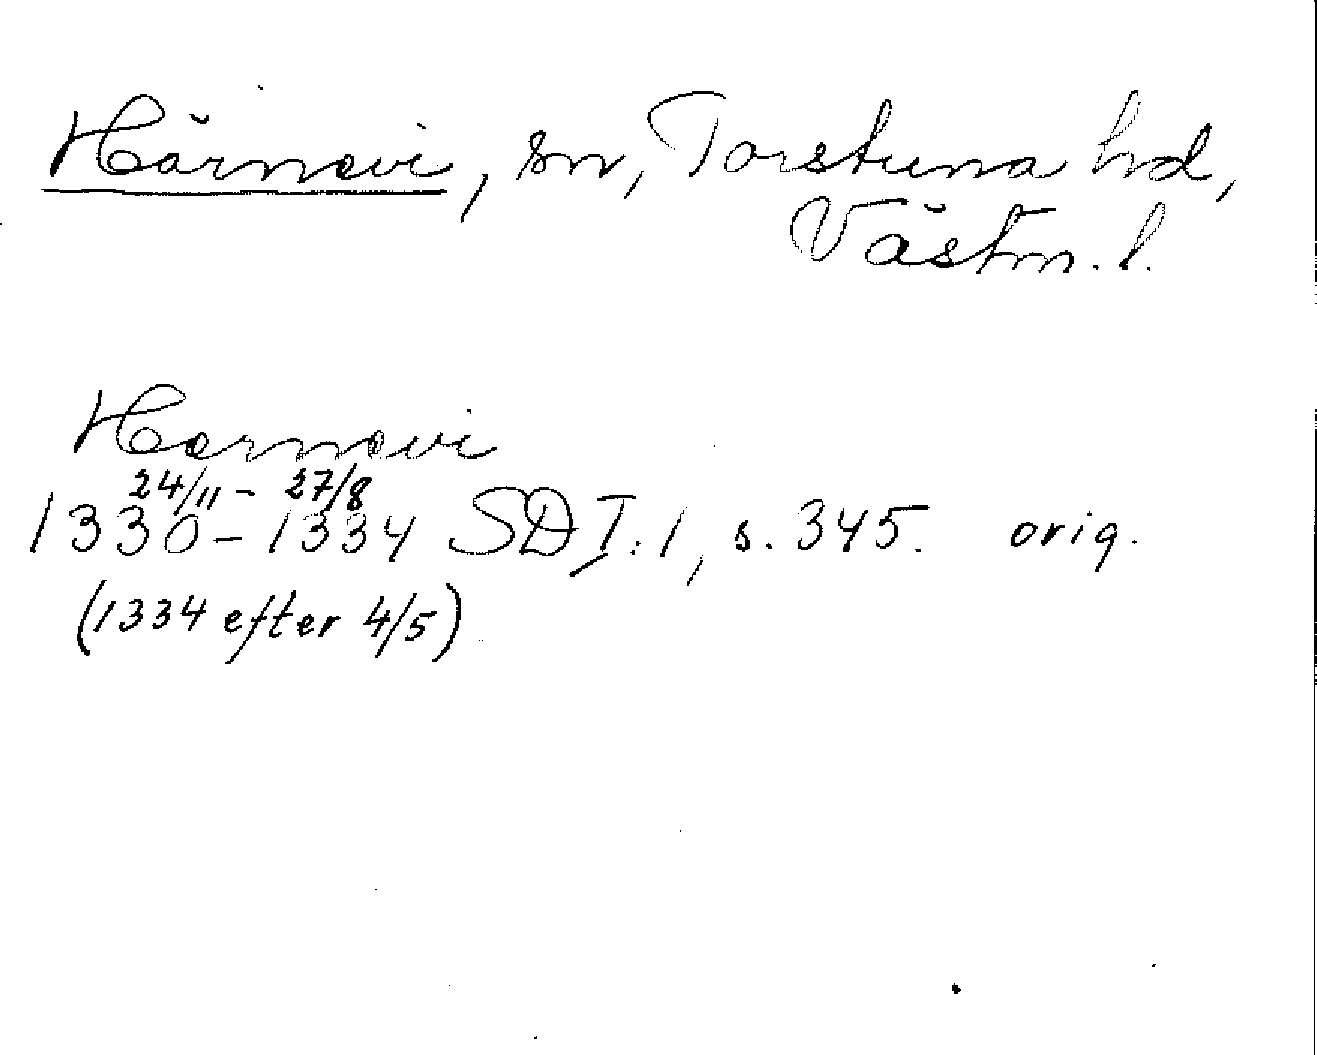 Härnevi, sn, Torstuna hd,
Västm. l.
Hærnevi
24/11 - 27/8
1330-1334 SD I:1, s. 345. orig.
(1334 efter 4/5)